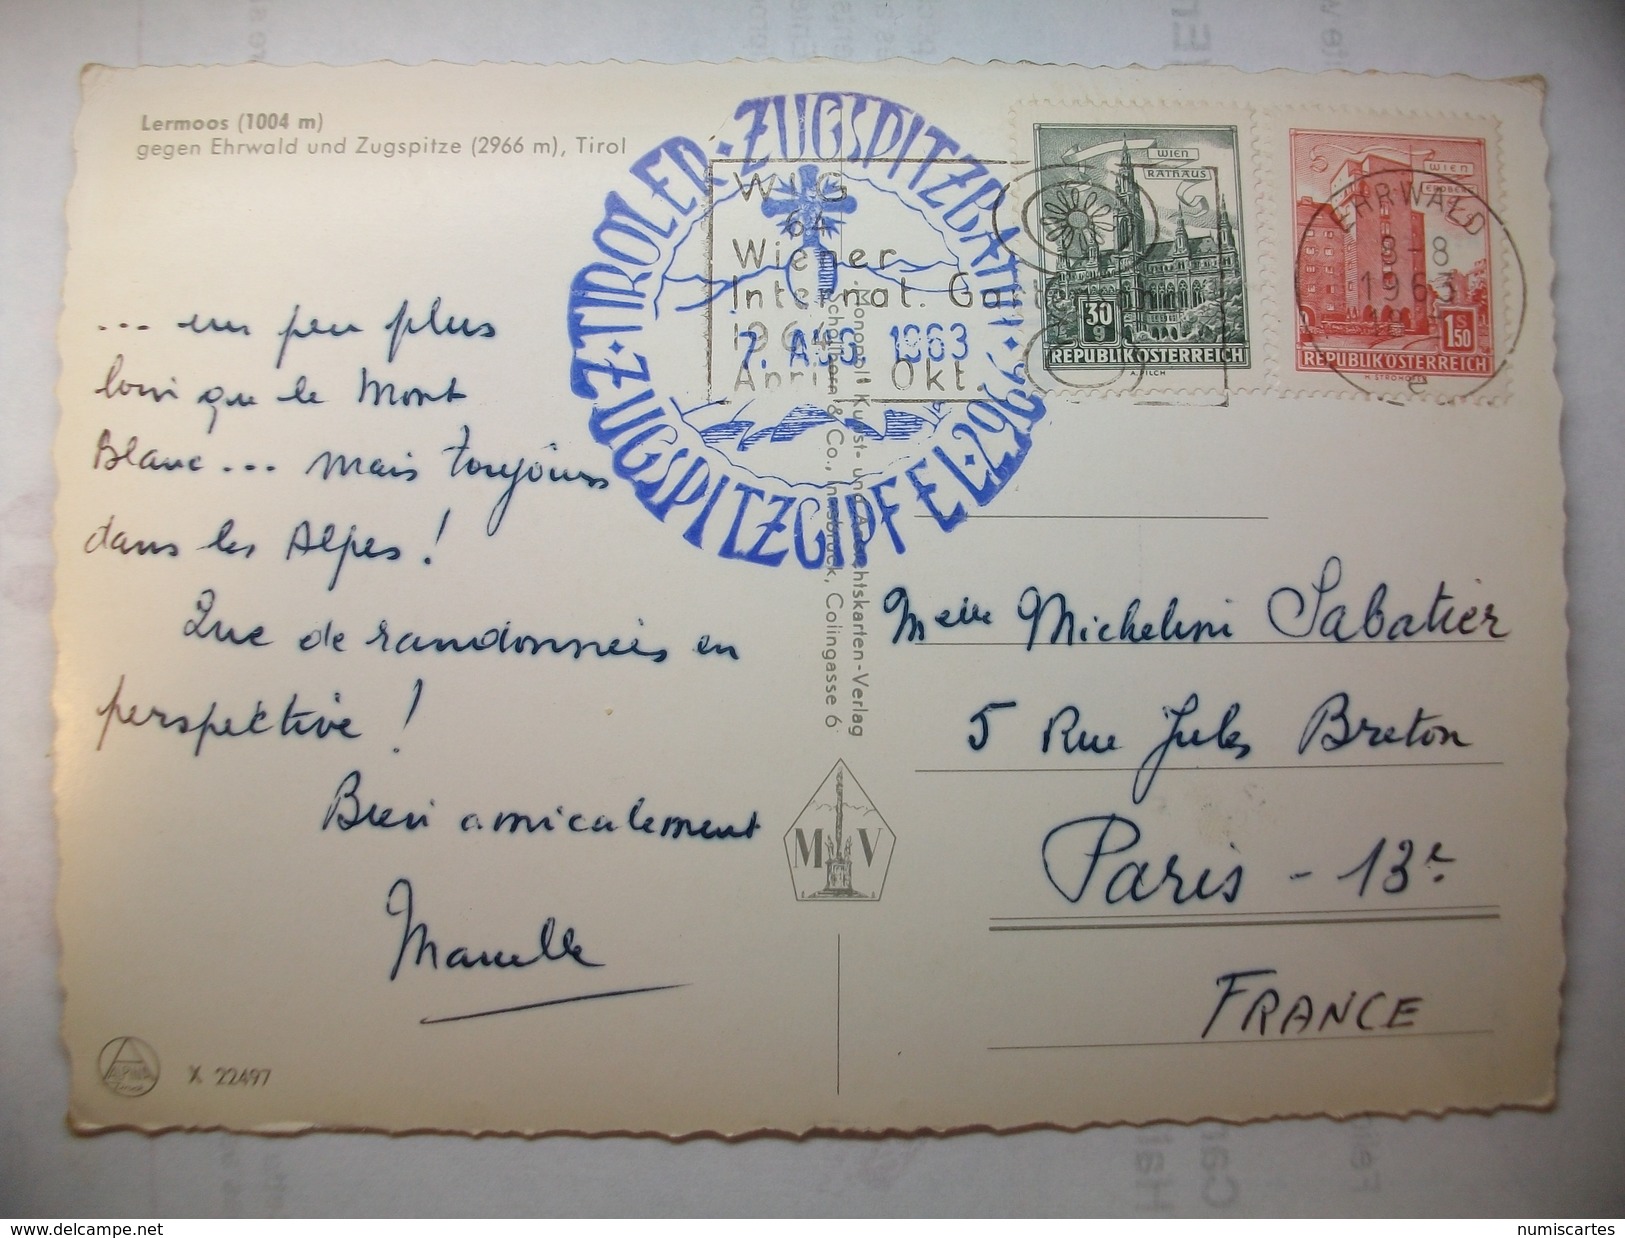 Lermoos (1004 m)
gegen Ehrwald und Zugspitze (2966 m), Tirol
... un peu plus
loin que le Mont
Blanc ... mais toujours
dans les Alpes !
Que de randonnées en
perspective !
Bien amicalement
Marcelle
X 22497
TIROLER · ZUGSPITZBAHN ·
ZUGSPITZGIPFEL · 296
7. AUG 1963
WIG
64
Wiener
Internat. Gartenschau
1964
April Okt.
WIEN
RATHAUS
30
g
REPUBLIK ÖSTERREICH
A. PILCH
WIEN
ERDBERG
1.50
S
REPUBLIK ÖSTERREICH
H. STROHOFER
EHRWALD
8-8
1963
"Monopol" Kunst- und Ansichtskarten-Verlag
Schöllhorn & Co., Innsbruck, Colingasse 6
M V
Melle Micheline Sabatier
5 Rue Jules Breton
Paris - 13e
FRANCE
http://www.delcampe.net
numiscartes